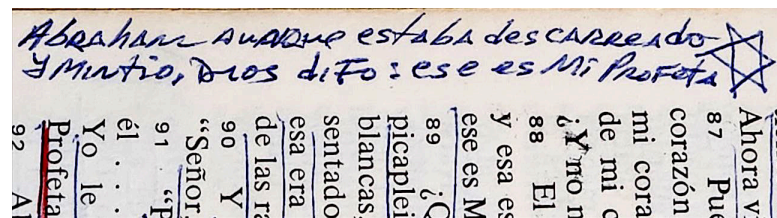 Abraham aunque estaba descarreado
Y Mintio, Dios diJo: ese es Mi Profeta
Ahora v
87 Pue
corazón
mi cora
de mi c
¿Y no n
88 El
y esa es
ese es M
89 ¿Q
picaplei
blancas,
sentado
esa era
de las ra
90 Y
“Señor,
91 “P
él . . .
Yo le
Profeta
92 Al